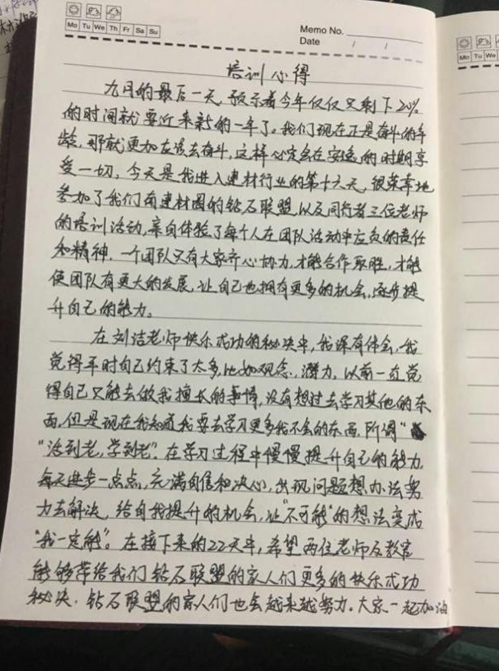 Memo No.
Mo Tu We Th Fr Sa Su
Date / /
培训心得
九月的最后一天,预示着今年仅仅只剩下24%
的时间就要迎来新的一年了。我们现在正是奋斗的年
龄,那就更加应该去奋斗,这样必定会在安逸的时期享
受一切,今天是我进入建材行业的第十六天,很荣幸地
参加了我们商建材圈的钻石联盟以及同行者三位老师
的培训活动,亲自体验了每个人在团队活动中应负的责任
和精神。一个团队只有大家齐心协力,才能合作取胜,才能
使团队有更大的发展,让自己也拥有更多的机会,逐步提
升自己的能力。
在刘洁老师快乐成功的秘决中,我深有体会,我
觉得平时自己约束了太多,比如观念,潜力,以前一直觉
得自己只能去做我擅长的事情,没有想过去学习其他的东
西,但是现在我知道我要去学习更多我不会的东西,所谓
“活到老,学到老”,在学习过程中慢慢提升自己的能力,
每天进步一点点,充满自信和决心,出现问题想办法努
力去解决,给自我提升的机会,让“不可能”的想法变成
“我一定能”。在接下来的22天中,希望两位老师及教官
能够带给我们钻石联盟的家人们更多的快乐成功
秘决,钻石联盟的家人们也会越来越努力。大家一起加油
Mo Tu We